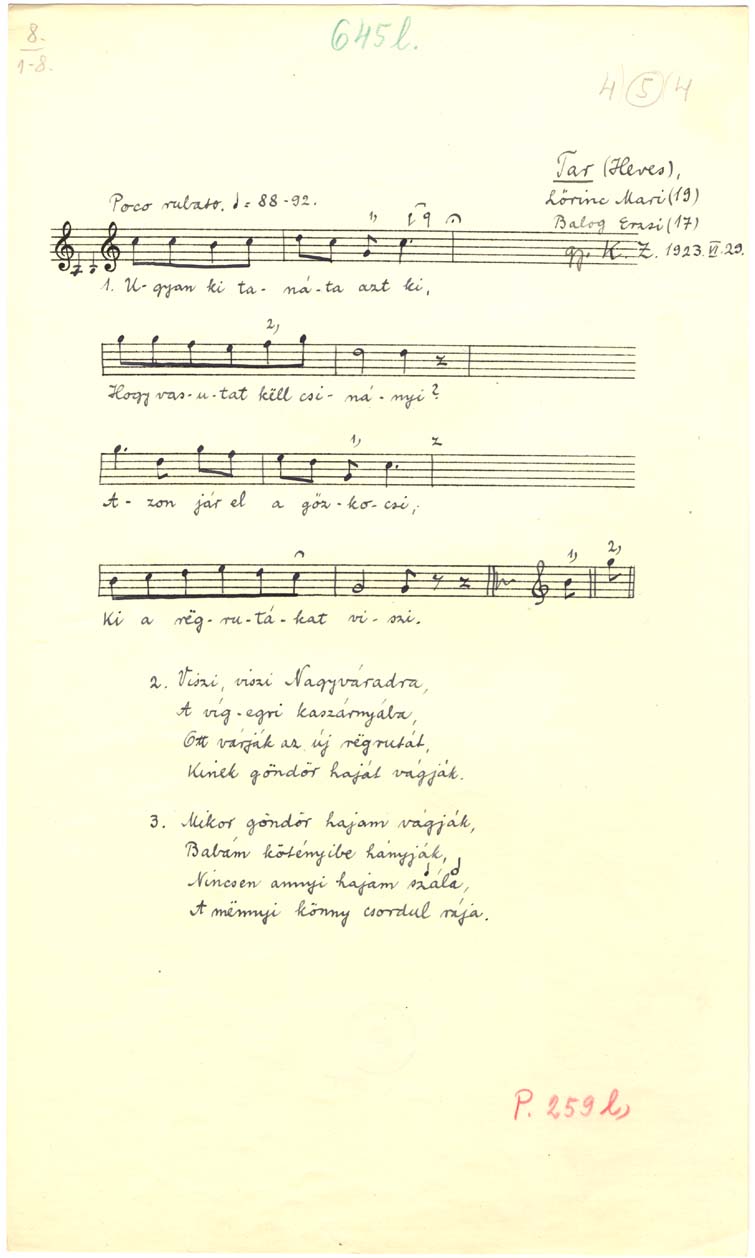 8.
1-8.
645l.
4 5 4
Tar (Heves),
Lőrinc Mari (19)
Balog Erzsi (17)
gy. K. Z. 1923. VI. 29.
Poco rubato. ♩ = 88-92.
1)
1. U-gyan ki ta-ná-ta azt ki,
2)
Hogy vas-u-tat këll csi-ná-nyi?
1)
A-zon jár el a gőz-ko-csi,
1) 2)
Ki a rëg-ru-tá-kat vi-szi.
2. Viszi, viszi Nagyváradra,
A víg-egri kaszárnyába,
Ott várják az új rëgrutát,
Kinek göndör haját vágják.
3. Mikor göndör hajam vágják,
Babám kötényibe hányják,
Nincsen annyi hajam szála,
A mënnyi könny csordul rája.
P. 259 l,